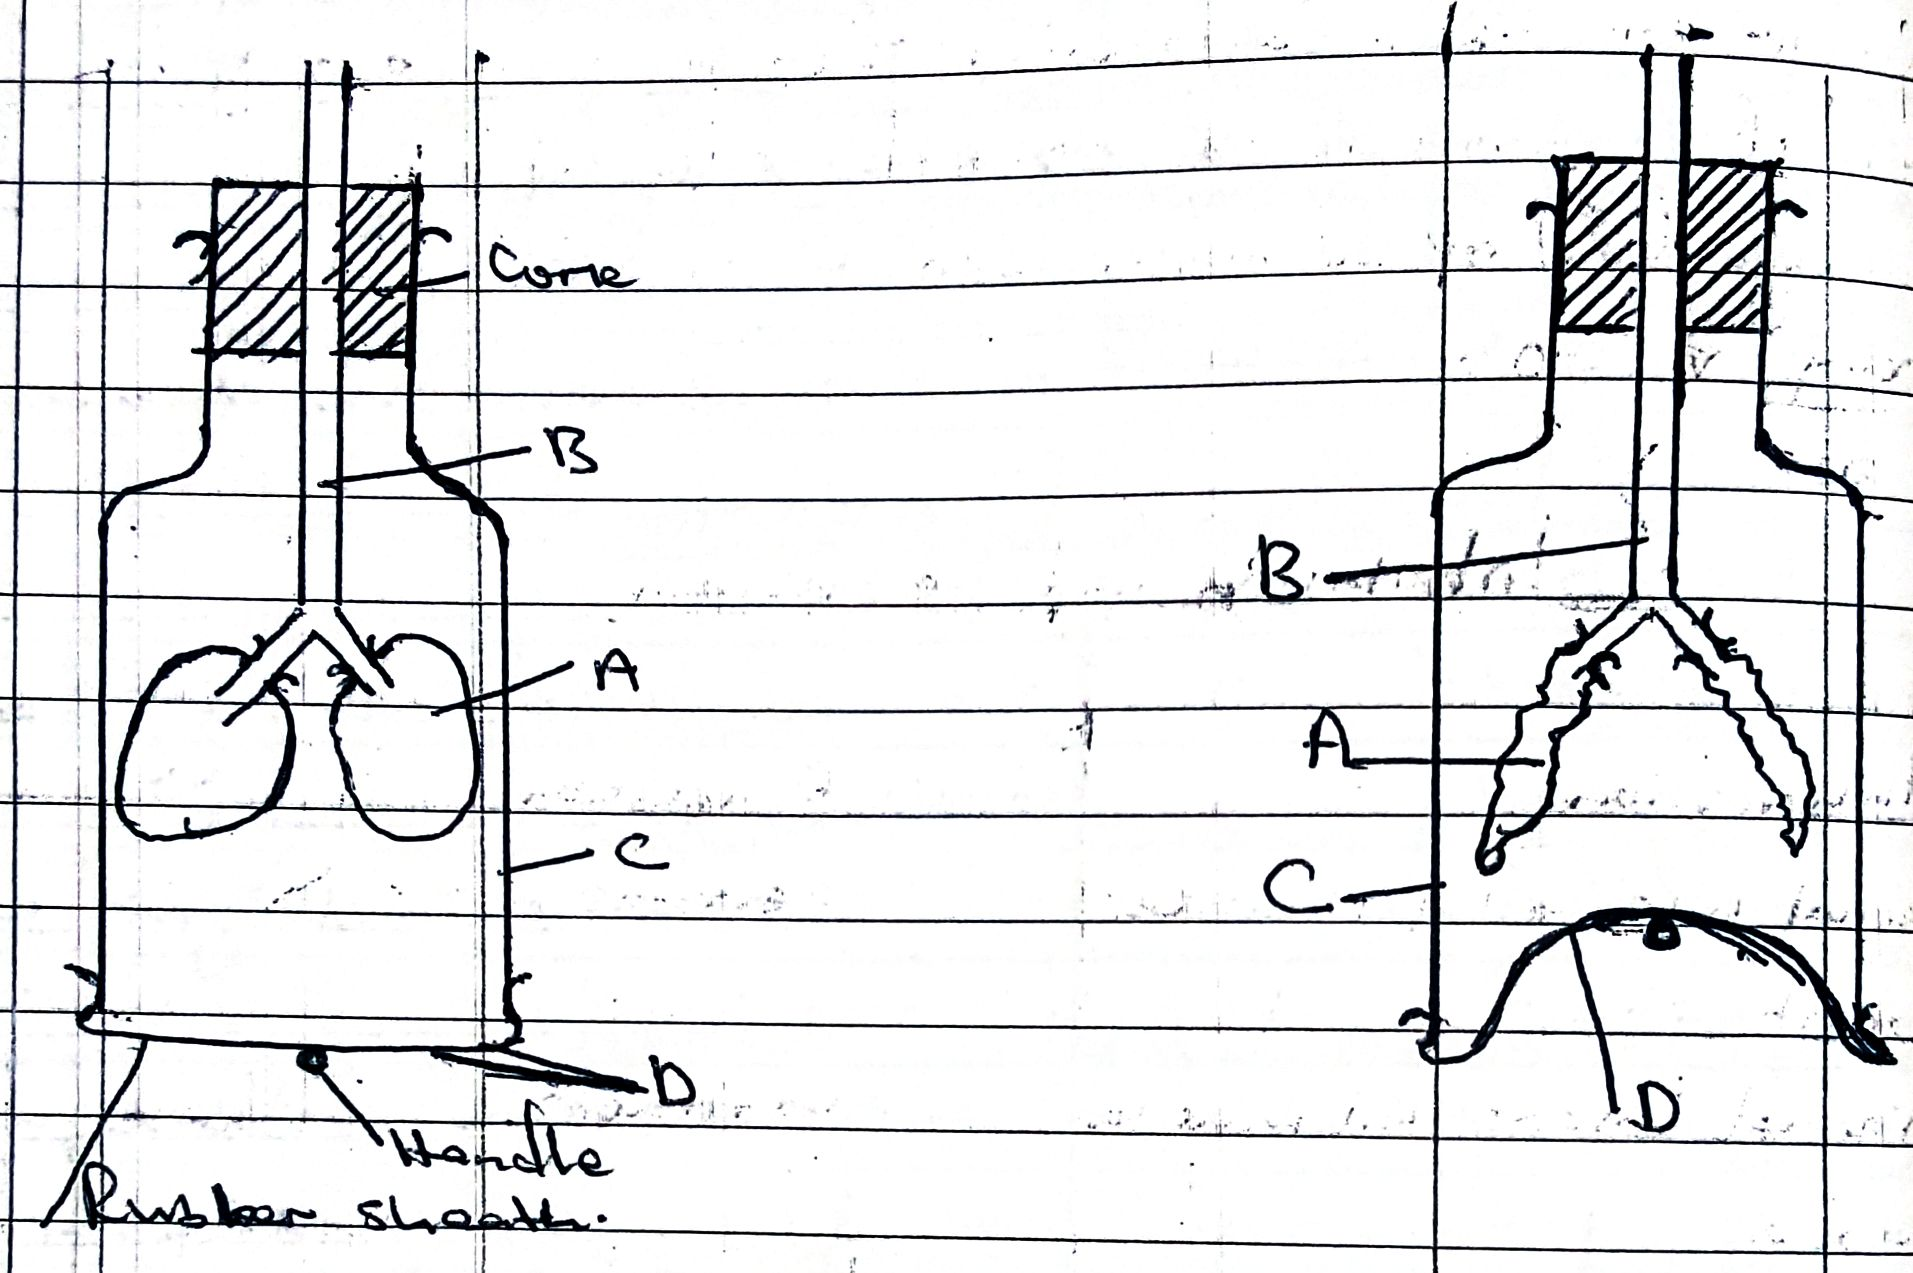 Cork
B
A
C
D
Handle
Rubber sheath.
B
A
C
D